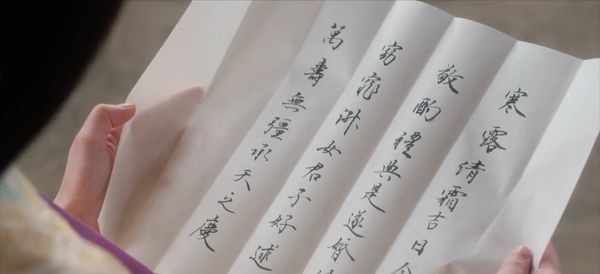 寒露結霜吉日
敬酌禮典是遂婚
窈窕淑女君子好逑
萬壽無疆承天之慶